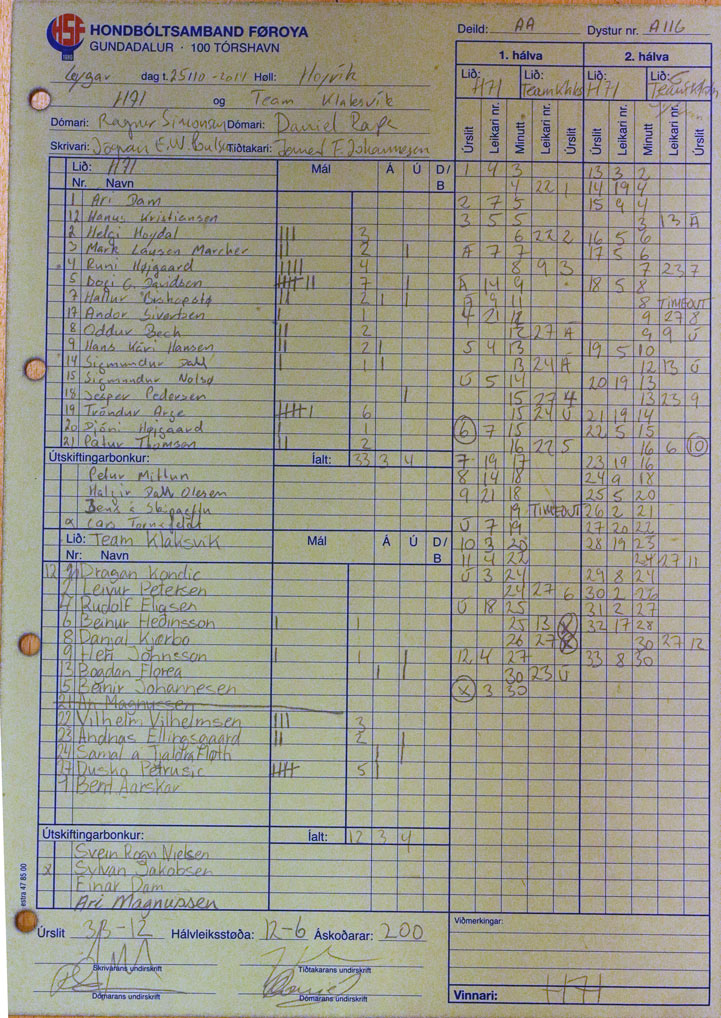 HSF
HONDBÓLTSAMBAND FØROYA
GUNDADALUR · 100 TÓRSHAVN
Deild: AA Dystur nr. A116
Leygar dag t. 25/10-2014 Høll: Hoyvík
H71 og Team Klaksvík
Dómari: Ragnur Simonsen Dómari: Daniel Rape
Skrivari: E.W. Tíðtakari: F. Johannesen
Lið: H71 Mál Á Ú D/B
Nr. Navn
1 Ari Dam
12 Hanus Kristiansen
2 Helgi Hoydal III 3
3 Mark Lausen Marcher II 2 I
4 Runi Højgaard IIII 4
5 Davidsen 7 I
7 Hallur II 2 I I
17 Andor Sivertsen I 1
8 Oddur Beck II 2
9 Hans Kári Hansen II 2 I
14 Sigmundur Dahl I 1 I
15 Sigmundur Nolsø
18 Jesper Pedersen I
19 Tróndur Arge 6
20 Højgaard I 1
21 Pátur Thomsen II 2
Útskiftingarbonkur: Íalt: 33 3 4
Petur Mittun
Dahl Olesen
Lars
Lið: Team Klaksvík Mál Á Ú D/B
Nr: Navn
Dragan Kondic
2 Leivur Petersen
4 Rudolf Eligsen
6 Beinur Hedinsson I 1
8 Danjal Kjærbo
9 Heri Johnsson I 1 I
13 Bogdan Florea I
5 Beinir Johannesen
21 Ari Magnussen
22 Vilhelm Vilhelmsen III 3
23 Andrias Ellingsgaard II 2 I
24 Samal a
27 Dusko Petrusic 5 I
1 Berd Aarskar
Útskiftingarbonkur: Íalt: 12 3 4
Svein Rogn Nielsen
x Sylvan Jakobsen
Einar Dam
Ari Magnussen
Úrslit 33-12 Hálvleiksstøða: 12-6 Áskoðarar: 200
Skrivarans undirskrift Tíðtakarans undirskrift
Dómarans undirskrift Dómarans undirskrift
estra 47 85 00
1. hálva 2. hálva
Lið: H71 Lið: Team Klaks Lið: H71 Lið: Team
Úrslit Leikari nr. Minutt Leikari nr. Úrslit Úrslit Leikari nr. Minutt Leikari nr. Úrslit
1 4 3 13 3 2
4 22 1 14 19 4
2 7 5 15 9 4
3 5 5 3 13 Á
6 22 2 16 5 6
Á 7 7 17 5 6
8 9 3 7 23 7
Á 14 9 18 5 8
Á 9 11 8 TIMEOUT
4 21 12 9 27 8
12 27 Á 9 9 Ú
5 4 13 19 5 10
13 24 Á 12 13 Ú
Ú 5 14 20 19 13
15 27 4 13 23 9
15 24 Ú 21 19 14
6 7 15 22 5 15
16 22 5 16 6 10
7 19 17 23 19 16
8 14 18 24 9 18
9 21 18 25 5 20
19 TIMEOUT 26 2 21
Ú 7 19 27 20 22
10 3 20 28 19 23
11 4 22 24 27 11
Ú 3 24 29 8 24
24 27 6 30 2 26
Ú 18 25 31 2 27
25 13 X 32 17 28
26 27 X 30 27 12
12 4 27 33 8 30
30 23 Ú
X 3 30
Viðmerkingar:
Vinnari: H71